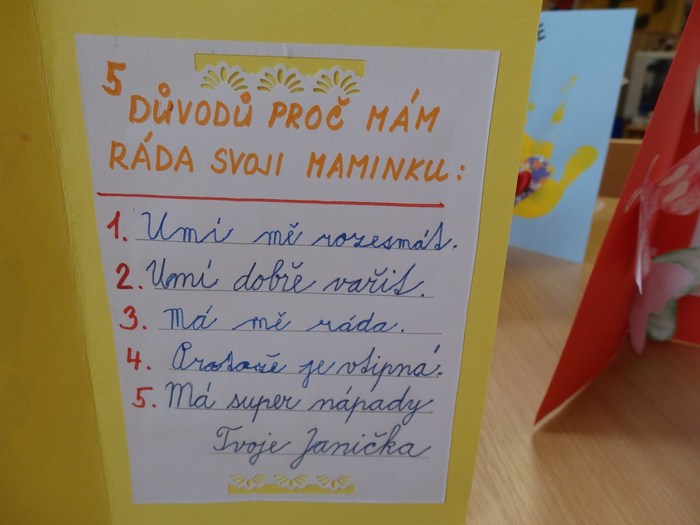 5 DŮVODŮ PROČ MÁM
RÁDA SVOJI MAMINKU:
1. Umí mě rozesmát.
2. Umí dobře vařit.
3. Má mě ráda.
4. Protože je vtipná.
5. Má super nápady
Tvoje Janička